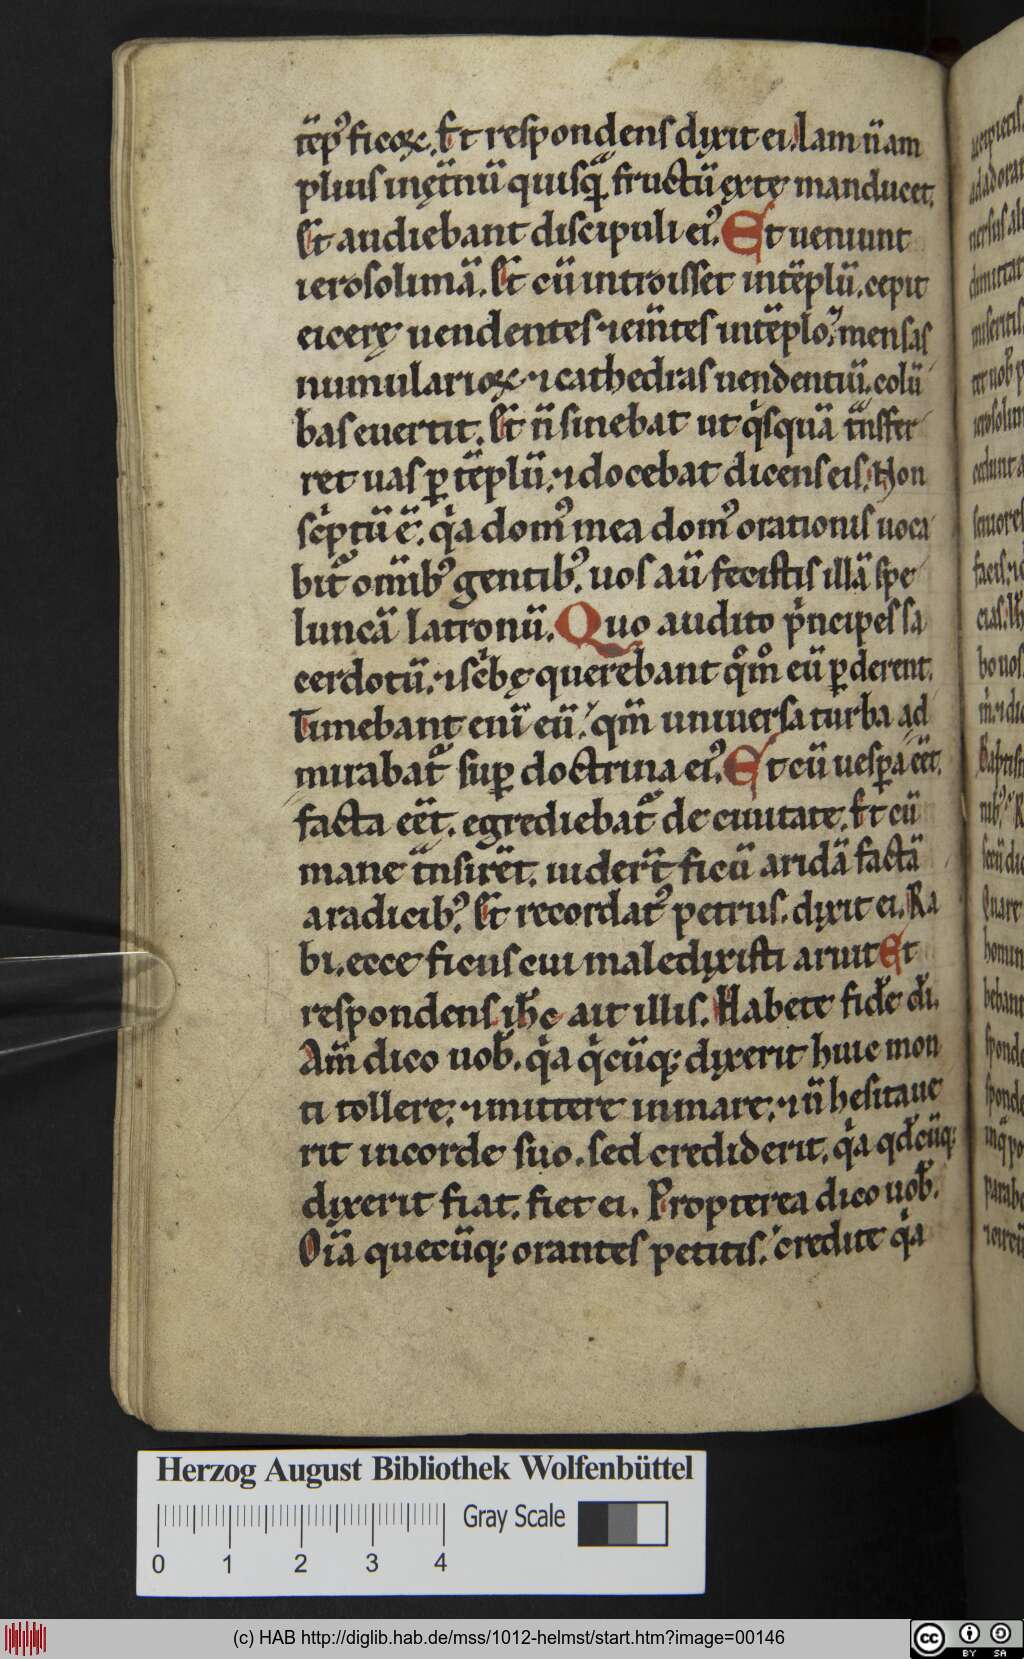 tēpꝰ ficoꝝ. Et respondens dixit ei. Iam n̄ am
plius inęt̄nū quisq̄ fructū ex te manducet.
Et audiebant discipuli eiꝰ. Et ueniunt
ierosolimā. Et cū introisset intēplū. cepit
eicere uendentes ⁊ em̄tes intēplo. mensas
numularioꝝ ⁊ cathedras uendentiū. colū
bas euertit. Et n̄ sinebat ut qͥsquā tn̄sfer
ret uas ꝑ tēplū. ⁊ docebat dicens eis. Non
scͥptū ē. qͥa domꝰ mea domꝰ orationis uoca
bit᷑ om̄ibꝰ gentibꝰ. uos aū fecistis illā spe
luncā latronū. Quo audito pͥncipes sa
cerdotū. ⁊ scͥbę querebant qͦmͦ eū ꝑderent.
Timebant enī eū. qm̄ uniuersa turba ad
mirabat᷑ suꝑ doctrina eiꝰ. Et cū uespa ēēt.
facta ēēt. egrediebat᷑ de ciuitate. Et cū
mane tn̄sirēt. uider̄t ficū aridā factā
aradicibꝰ. Et recordatꝰ petrus. dixit ei. Ra
bi. ecce ficus cui maledixisti aruit Et
respondens ih̄c ait illis. Habete fidē dī.
Am̄ dico uob̄. qͥa qͥcūq; dixerit huic mon
ti tollere. ⁊ mittere in mare. ⁊ n̄ hesitaue
rit incorde suo. sed crediderit. qͥa qd̄cūq;
dixerit fiat. fiet ei. Propterea dico uob̄.
Oīa quecūq; orantes petitis. credite qͥa
Herzog August Bibliothek Wolfenbüttel
Gray Scale
0 1 2 3 4
(c) HAB http://diglib.hab.de/mss/1012-helmst/start.htm?image=00146
cc BY SA